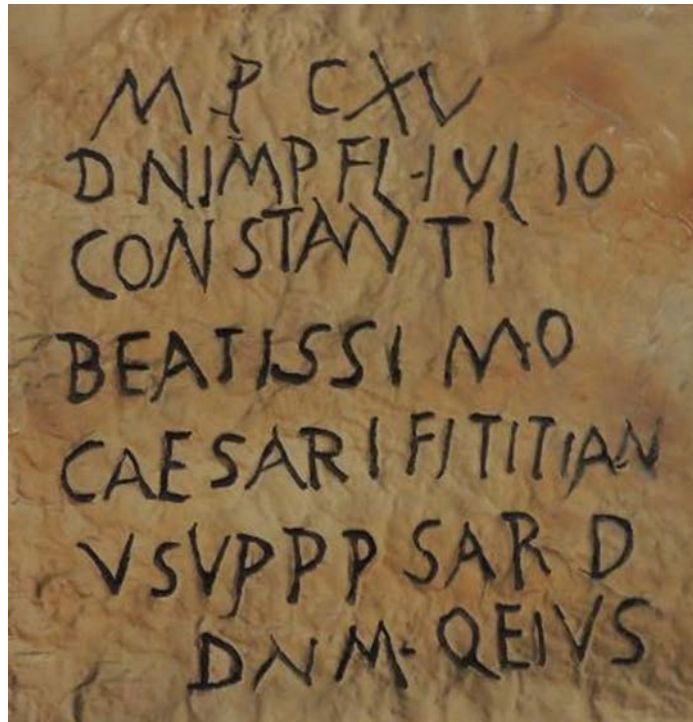 MP CXV
DNIMP FL-IVLIO
CONSTANTI
BEATISSIMO
CAESARI FITITIAN
VSVPPP SARD
DNM·QEIVS